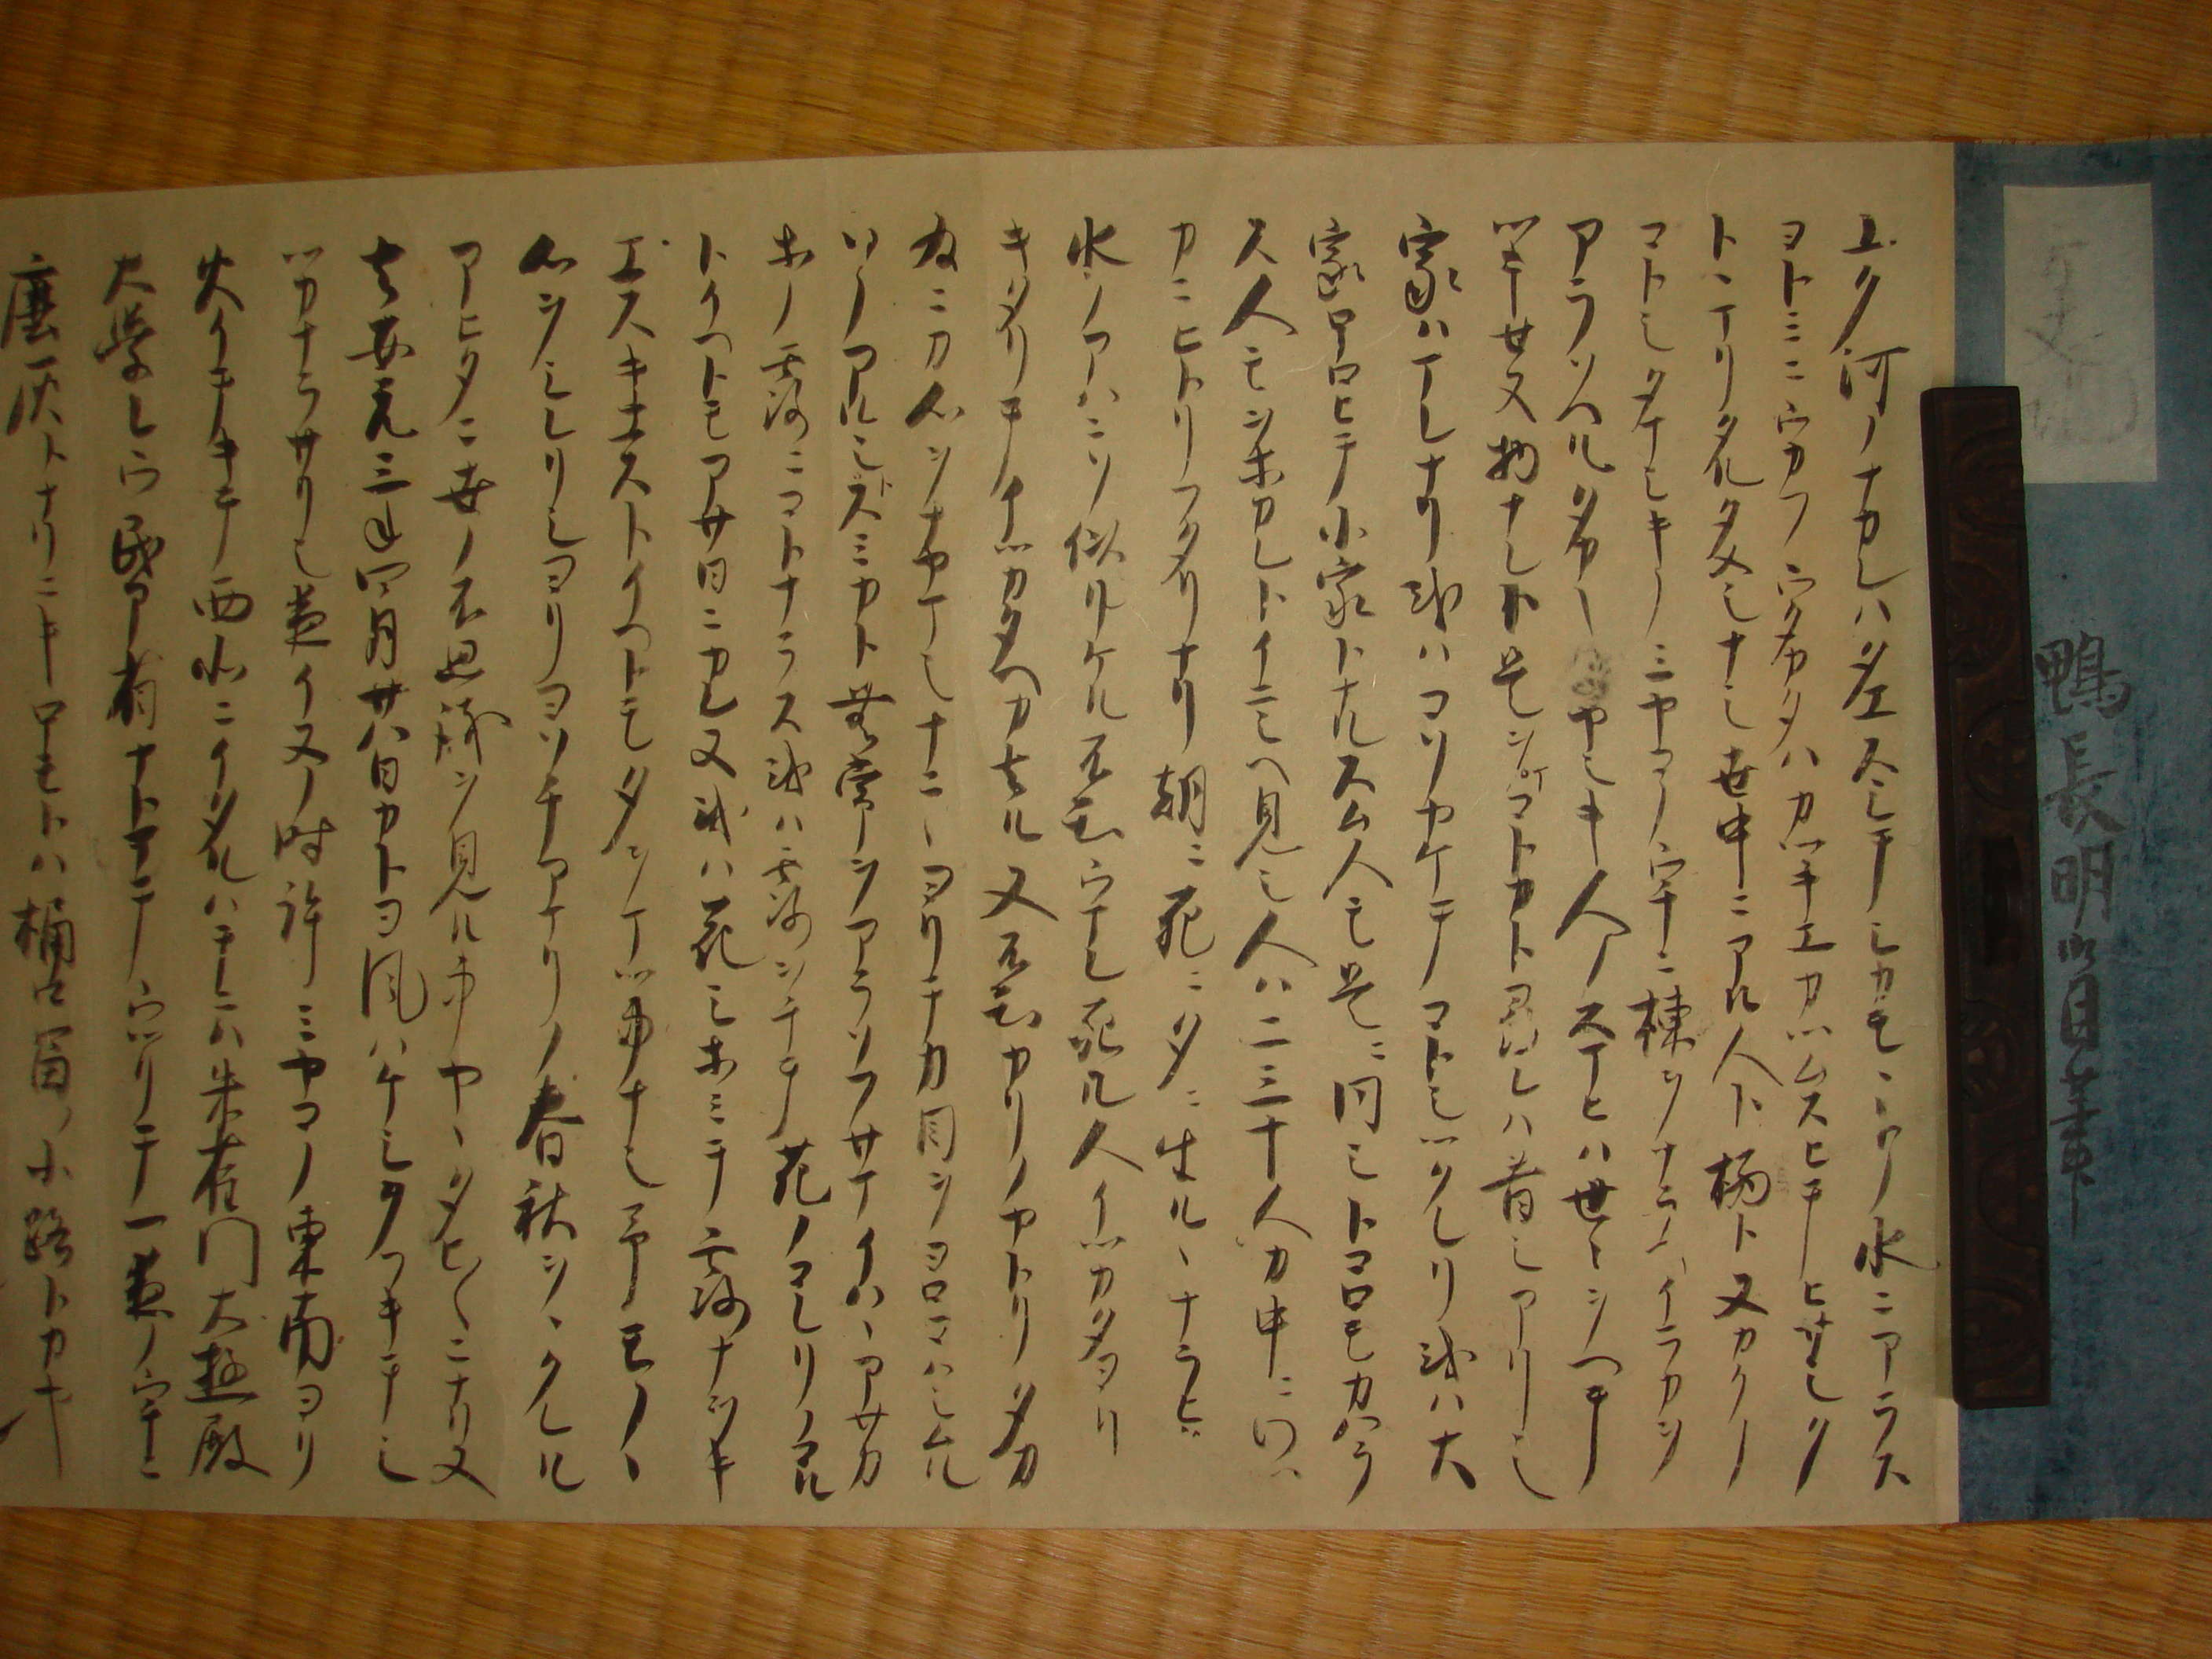 鴨長明自筆
ユク河ノナカレハタエスシテシカモヽトノ水ニアラス
ヨトミニウカフウタカタハカツキエカツムスヒテヒサシク
トヽマリタルタメシナシ世中ニアル人ト栖ト又カクノ
コトシタマシキノミヤコノウチニ棟ヲナラヘイラカヲ
アラソヘルタカキイヤシキ人ノスマヒハ世々ヲヘテ
ツキセヌ物ナレト是ヲマコトカト尋レハ昔シアリシ
家ハマレナリ或ハコソヤケテコトシツクレリ或ハ大
家ホロヒテ小家トナルスム人モ是ニ同シトコロモカハラ
ス人モヲホカレトイニシヘ見シ人ハ二三十人カ中ニワツ
カニヒトリフタリナリ朝ニ死ニ夕ニ生ルヽナラヒ
水ノアハニソ似リケル不知ウマレ死ル人イツカタヨリ
キタリテイツカタヘカ去ル又不知カリノヤトリタカ
為ニカ心ヲナヤマシナニヽヨリテカ目ヲヨロコハシムル
ソノアルシトスミカト無常ヲアラソフサマイハヽアサカ
ホノ露ニコトナラス或ハ露ヲチテ花ノコレリノコル
トイヘトモアサ日ニカレヌ或ハ花シホミテ露ナヲキ
エスキエストイヘトモ夕ヲマツ事ナシ予モノヽ
心ヲシレリシヨリヨソチアマリノ春秋ヲヽクレル
アヒタニ世ノ不思議ヲ見ル事ヤヽタヒ〱ニナリヌ
去安元三年四月廿八日カトヨ風ハケシクフキテシ
ツカナラサリシ夜イヌノ時許ミヤコノ東南ヨリ
火イテキテ西北ニイタルハテニハ朱雀門大極殿
大学レウ民部省ナトマテウツリテ一夜ノウチニ
塵灰トナリニキホモトハ桶口冨ノ小路トカヤ